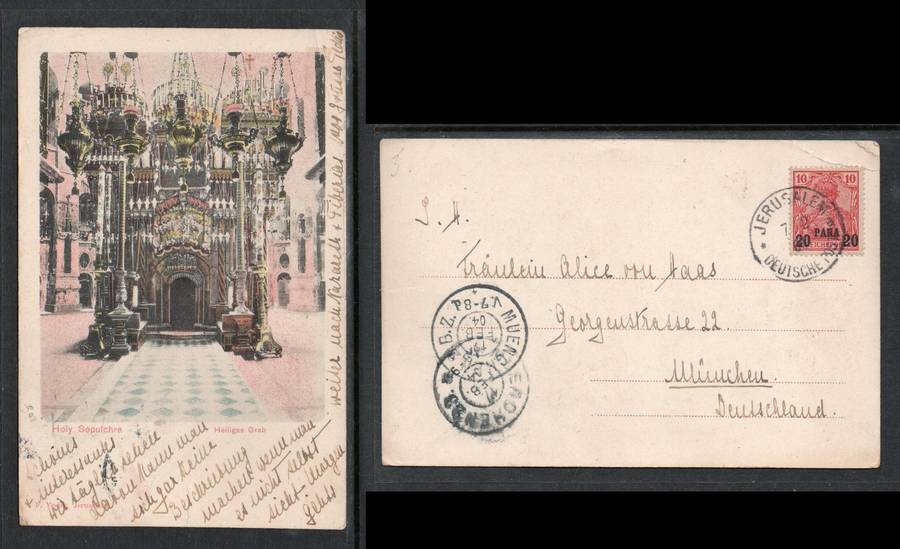 Holy Sepulchre
Heiliges Grab
Schönes
interessantes
wir täglich sehen
davon kann man
sich gar keine
Beschreibung
machen wenn man
es nicht selbst
sieht morgen
gehts
weiter nach Nazareth + Tiberias
Jerusalem
S. H.
Fräulein Alice von Haas
Georgenstrasse 22.
München.
Deutschland.
JERUSALEM
DEUTSCHE
10 10
20 PARA 20
REICHSPOST
MUENCHEN
B.Z.
V.7-8
FEB
04
MUENCHEN
FEB